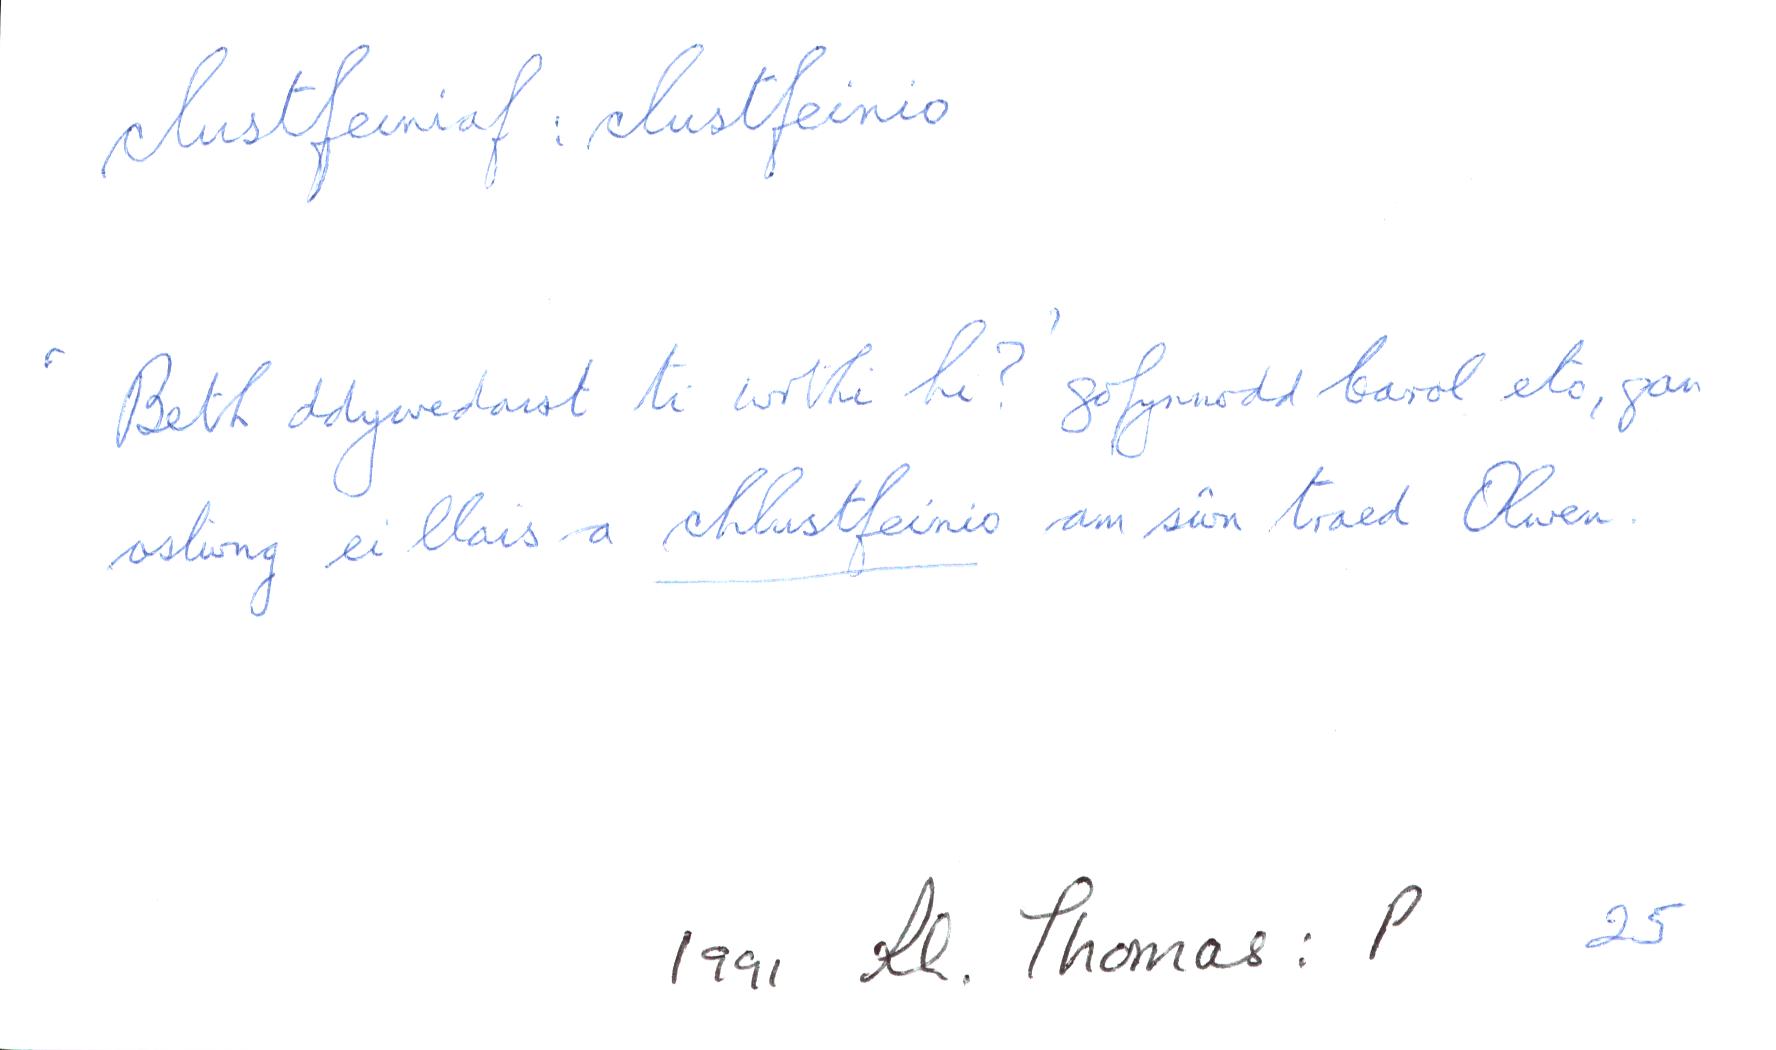 clustfeiniaf : clustfeinio
'Beth ddywedaist ti wrthi hi?' gofynnodd Carol eto, gan
ostwng ei llais a chlustfeinio am sŵn traed Olwen.
1991 Rh. Thomas : P 25